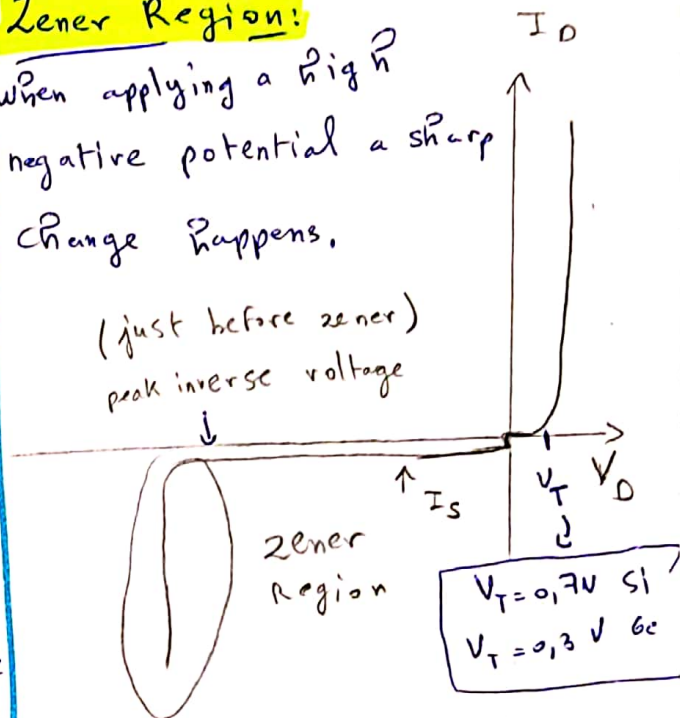 Zener Region:
when applying a high
negative potential a sharp
change happens.
(just before zener)
peak inverse voltage
I_D
V_D
V_T
I_S
zener
Region
V_T = 0,7V Si
V_T = 0,3 V Ge